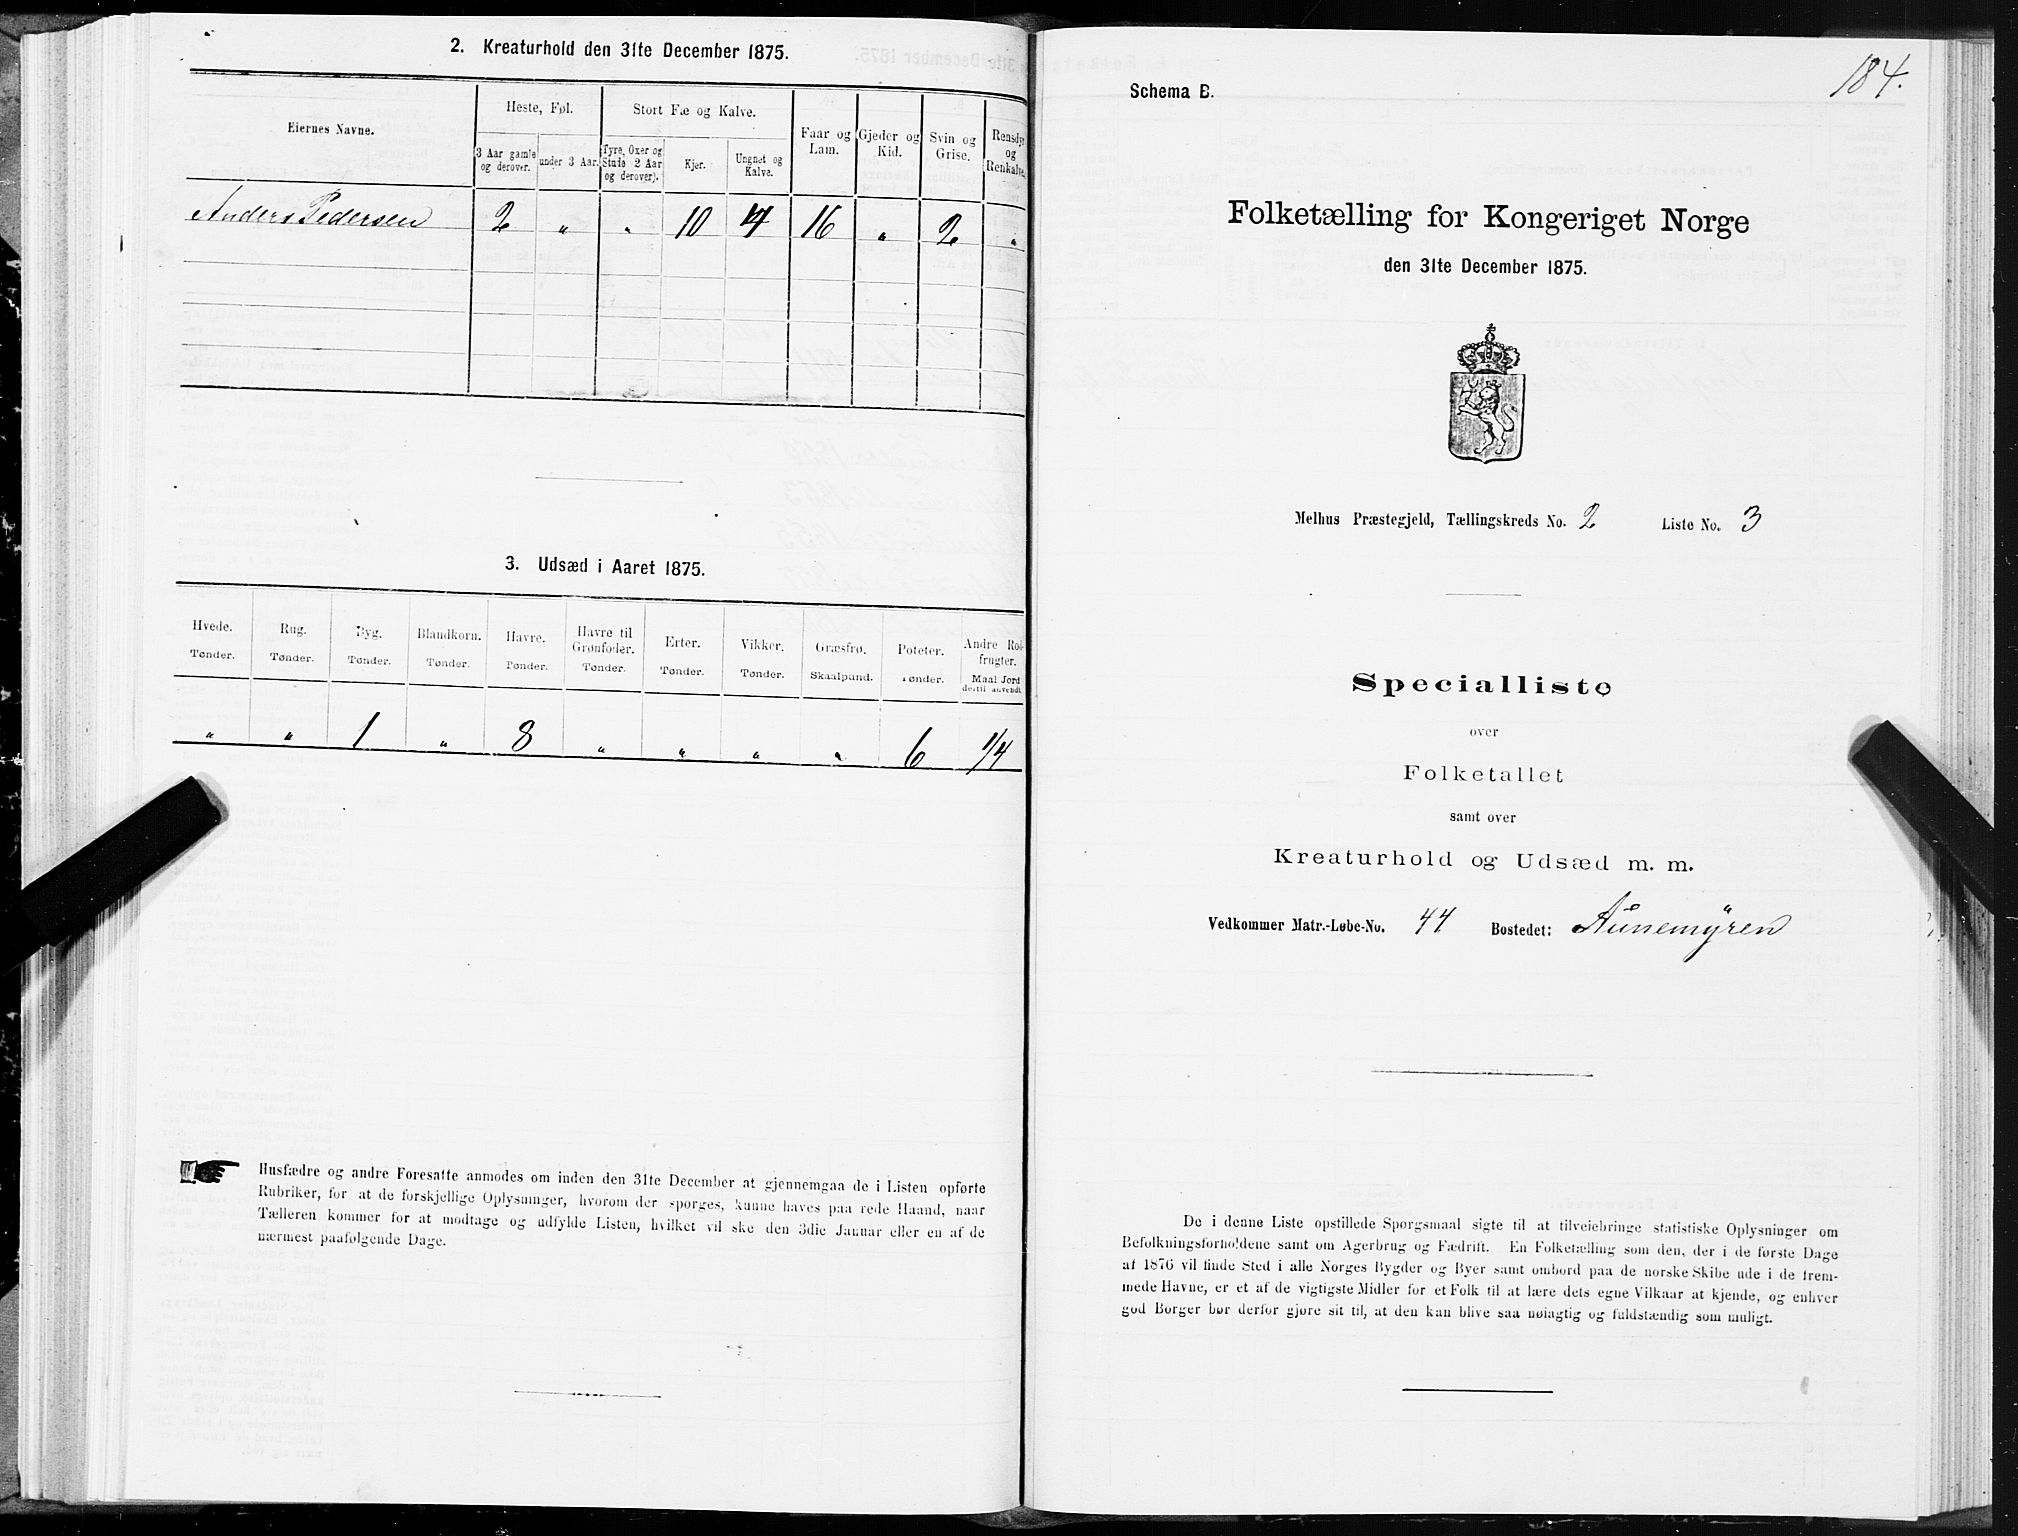 2. Kreaturhold den 31te December 1875.
Eiernes Navne.
Heste, Føl.
3 Aar gamle og derover.
under 3 Aar.
Stort Fæ og Kalve.
Tyre, Oxer og Stude 2 Aar og derover).
Kjer.
Ungnet og Kalve.
Faar og Lam.
Gjeder og Kid.
Svin og Grise.
Rensdyr og Renkalve.
Anders Pedersen 2 " " 10 4 16 " 2 "
3. Udsæd i Aaret 1875.
Hvede. Rug. Byg. Blandkorn. Havre. Havre til Grønfoder. Erter. Vikker. Græsfrø. Poteter. Andre Rodfrugter.
Tønder. Tønder. Tønder. Tønder. Tønder. Tønder. Tønder. Tønder. Skaalpund. Tønder. Maal Jord dertil anvendt.
" " 1 " 8 " " " " 6 1/4
Husfædre og andre Foresatte anmodes om inden den 31te December at gjennemgaa de i Listen opførte
Rubriker, for at de forskjellige Oplysninger, hvorom der spørges, kunne haves paa rede Haand, naar
Tælleren kommer for at modtage og udfylde Listen, hvilket vil ske den 3die Januar eller en af de
nærmest paafølgende Dage.
184.
Schema B.
Folketælling for Kongeriget Norge
den 31te December 1875.
Melhus Præstegjeld, Tællingskreds No. 2 Liste No. 3
Specialliste
over
Folketallet
samt over
Kreaturhold og Udsæd m. m.
Vedkommer Matr.-Løbe-No. 44 Bostedet: Aunemÿren
De i denne Liste opstillede Spørgsmaal sigte til at tilveiebringe statistiske Oplysninger om
Befolkningsforholdene samt om Agerbrug og Fædrift. En Folketælling som den, der i de første Dage
af 1876 vil finde Sted i alle Norges Bygder og Byer samt ombord paa de norske Skibe ude i de frem-
mede Havne, er et af de vigtigste Midler for et Folk til at lære dets egne Vilkaar at kjende, og enhver
god Borger bør derfor gjøre sit til, at den kan blive saa nøiagtig og fuldstændig som muligt.